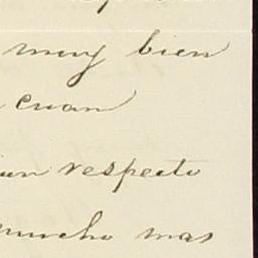 muy bien
cuan
respecto
mucho mas